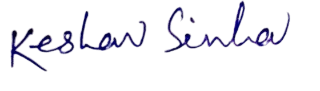 Keshav Sinha